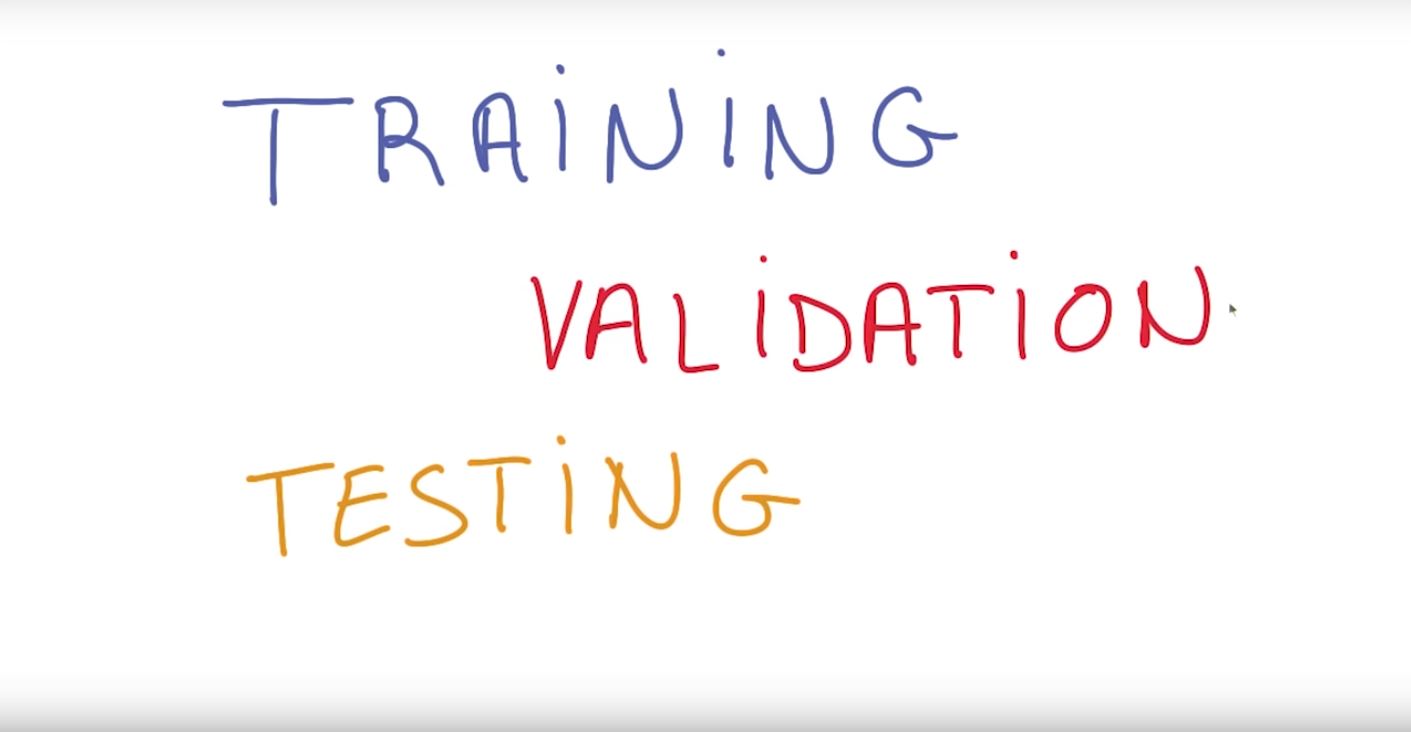 TRAiNiNG
VALiDATiON
TESTiNG